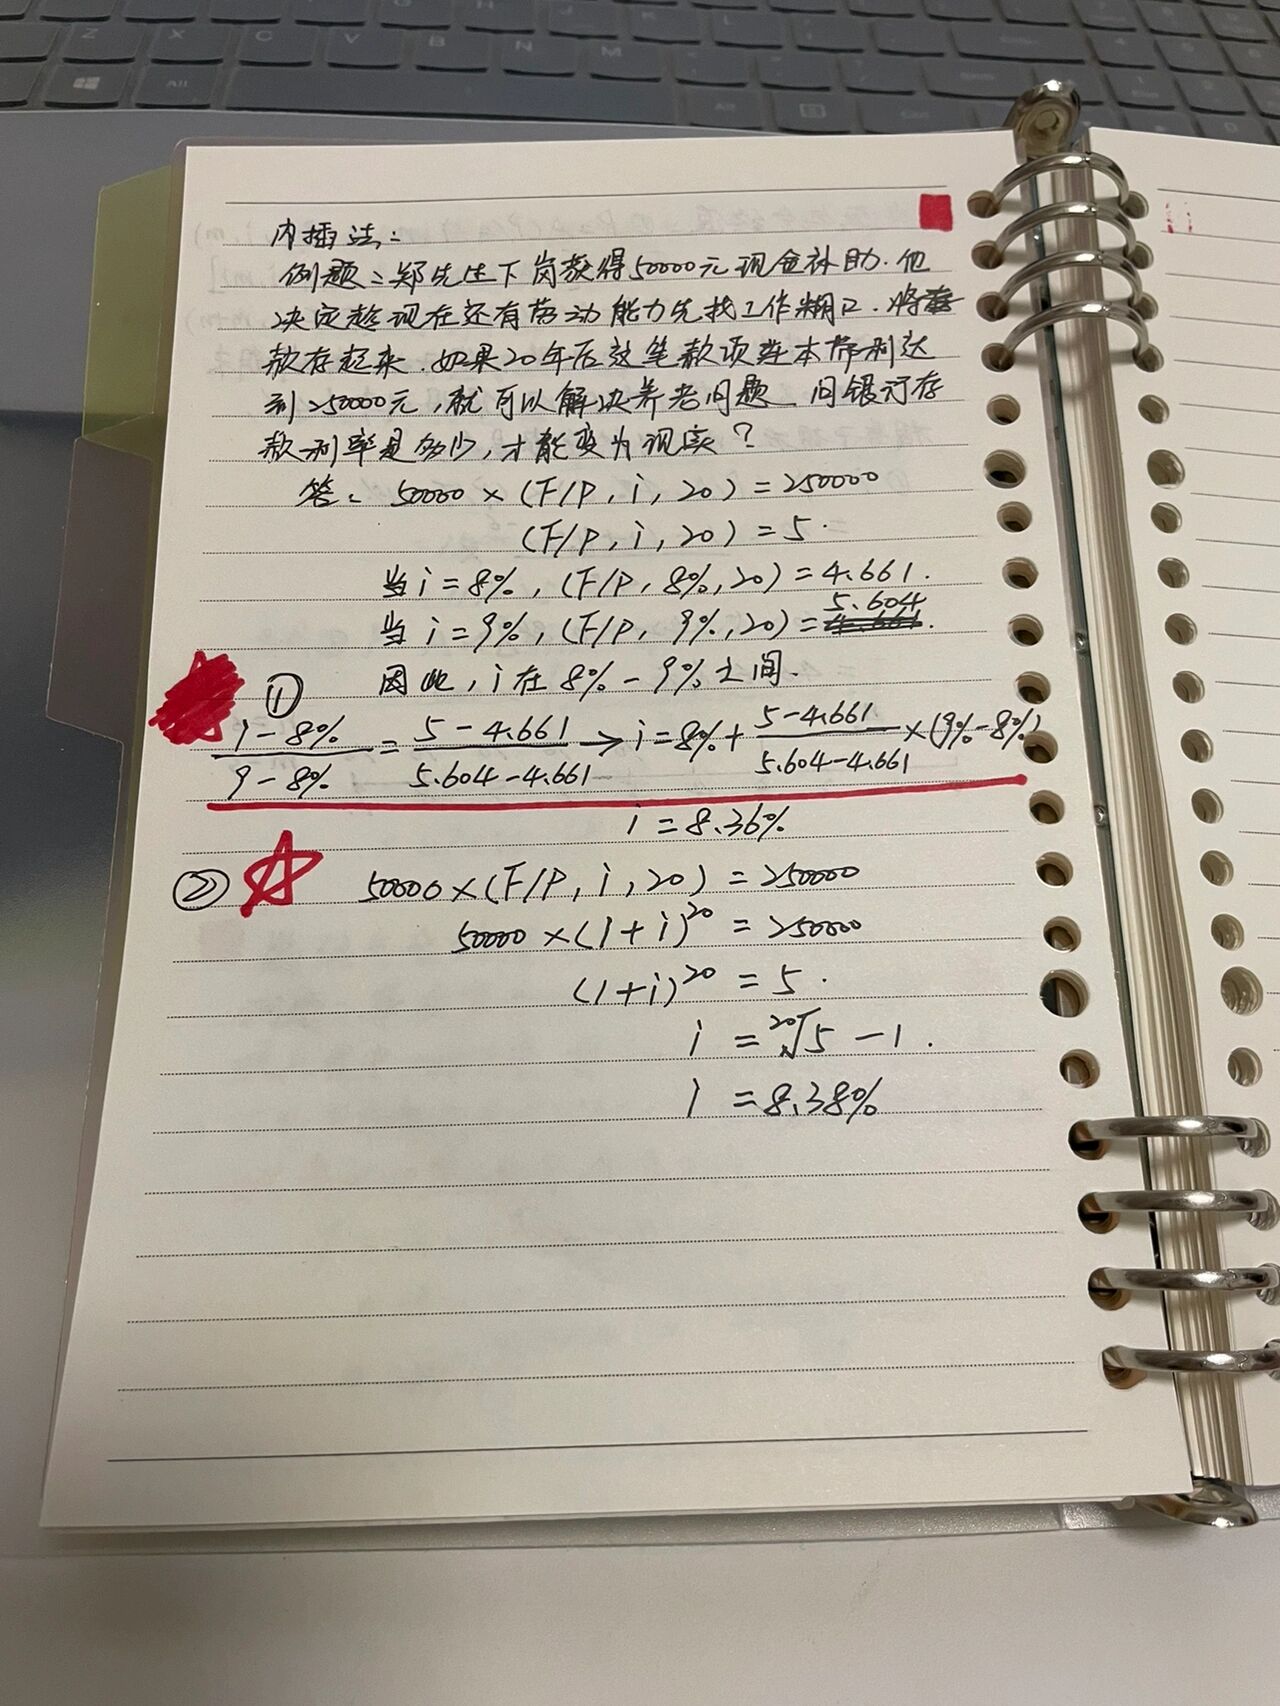 内插法：
例题：郑先生下岗获得50000元现金补助．他
决定趁现在还有劳动能力先找工作糊口．将
款存起来．如果20年后这笔款项连本带利达
到250000元，就可以解决养老问题．问银行存
款利率是多少，才能变为现实？
答：50000×(F/P，i，20)=250000
(F/P，i，20)=5．
当i=8%，(F/P，8%，20)=4.661．
当i=9%，(F/P，9%，20)=5.604．
因此，i在8%-9%之间．
① (i-8%)/(9-8%)=(5-4.661)/(5.604-4.661)→i=8%+(5-4.661)/(5.604-4.661)×(9%-8%)
i=8.36%
② 50000×(F/P，i，20)=250000
50000×(1+i)²⁰=250000
(1+i)²⁰=5．
i=²⁰√5-1．
i=8.38%
Z X C V B N M
Alt